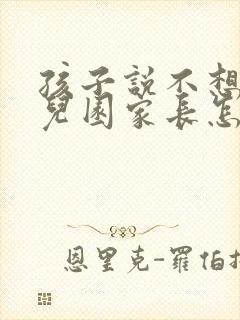 孩子說不想
兒園家長怎
恩里克-羅伯